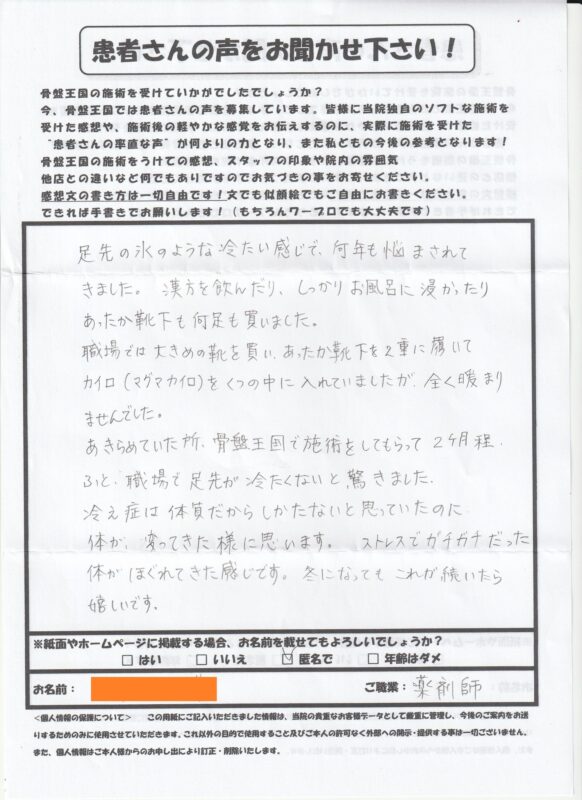 患者さんの声をお聞かせ下さい！
骨盤王国の施術を受けていかがでしたでしょうか？
今、骨盤王国では患者さんの声を募集しています。皆様に当院独自のソフトな施術を
受けた感想や、施術後の軽やかな感覚をお伝えするのに、実際に施術を受けた
“患者さんの率直な声”が何よりの力となり、また私どもの今後の参考となります！
骨盤王国の施術をうけての感想、スタッフの印象や院内の雰囲気
他店との違いなど何でもありですのでお気づきの事をお寄せください。
感想文の書き方は一切自由です！文でも似顔絵でもご自由にお書きください。
できれば手書きでお願いします！（もちろんワープロでも大丈夫です）
足先の氷のような冷たい感じで、何年も悩まされて
きました。漢方を飲んだり、しっかりお風呂に浸かったり
あったか靴下も何足も買いました。
職場では大きめの靴を買い、あったか靴下を2重に履いて
カイロ（マグマカイロ）をくつの中に入れていましたが、全く暖まり
ませんでした。
あきらめていた所、骨盤王国で施術をしてもらって2ヶ月程、
ふと、職場で足先が冷たくないと驚きました。
冷え症は体質だからしかたないと思っていたのに
体が、変ってきた様に思います。ストレスでガチガチだった
体がほぐれてきた感じです。冬になってもこれが続いたら
嬉しいです。
※紙面やホームページに掲載する場合、お名前を載せてもよろしいでしょうか？
□ はい □ いいえ ☑ 匿名で □ 年齢はダメ
お名前： ご職業：薬剤師
＜個人情報の保護について＞ この用紙にご記入いただきました情報は、当院の貴重なお客様データとして厳重に管理し、今後のご案内をお送
りするためのみに使用させていただきます。これ以外の目的で使用すること及びご本人の許可なく外部への開示・提供する事は一切ございません。
また、個人情報はご本人様からのお申し出により訂正・削除いたします。